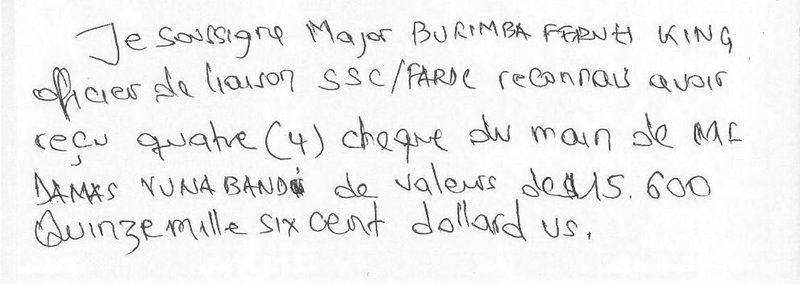 Je soussigne Major BURIMBA KING
officier de liaison SSC/FARDC reconnais avoir
reçu quatre (4) cheque du main de Mr
DAMAS de valeurs de 15.600
Quinze mille six cent dollard us.